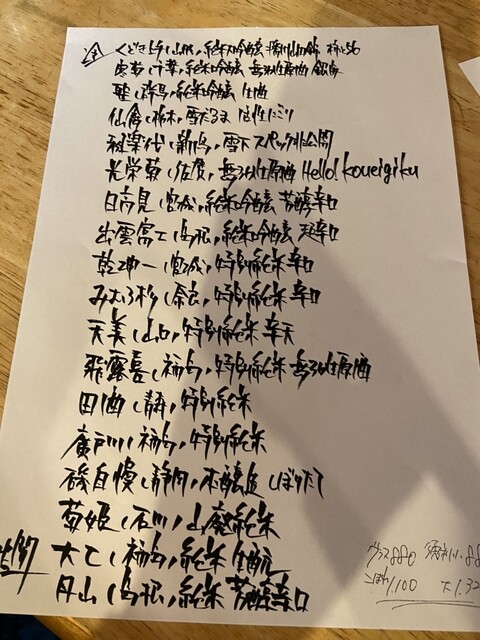 くどき上手(山形)純米大吟醸
寒菊(千葉)純米大吟醸 無ろ過生原酒
聖(群馬)純米吟醸 生酒
仙禽(栃木)雪だるま 活性にごり
(新潟)雪下 スペック非公開
光栄菊(佐賀)無ろ過生原酒 Hello! koueigiku
日高見(宮城)純米吟醸 芳醇辛口
出雲富士(島根)純米吟醸 超辛口
乾坤一(宮城)特別純米辛口
みむろ杉(奈良)特別純米辛口
天美(山口)特別純米 辛天
飛露喜(福島)特別純米 無ろ過生原酒
田酒(青森)特別純米
廣戸川(福島)特別純米
磯自慢(静岡)本醸造 しぼりたて
菊姫(石川)山廃純米
大七(福島)純米 生酛
月山(島根)純米 芳醇辛口
グラス 880
こぼれ 1,100